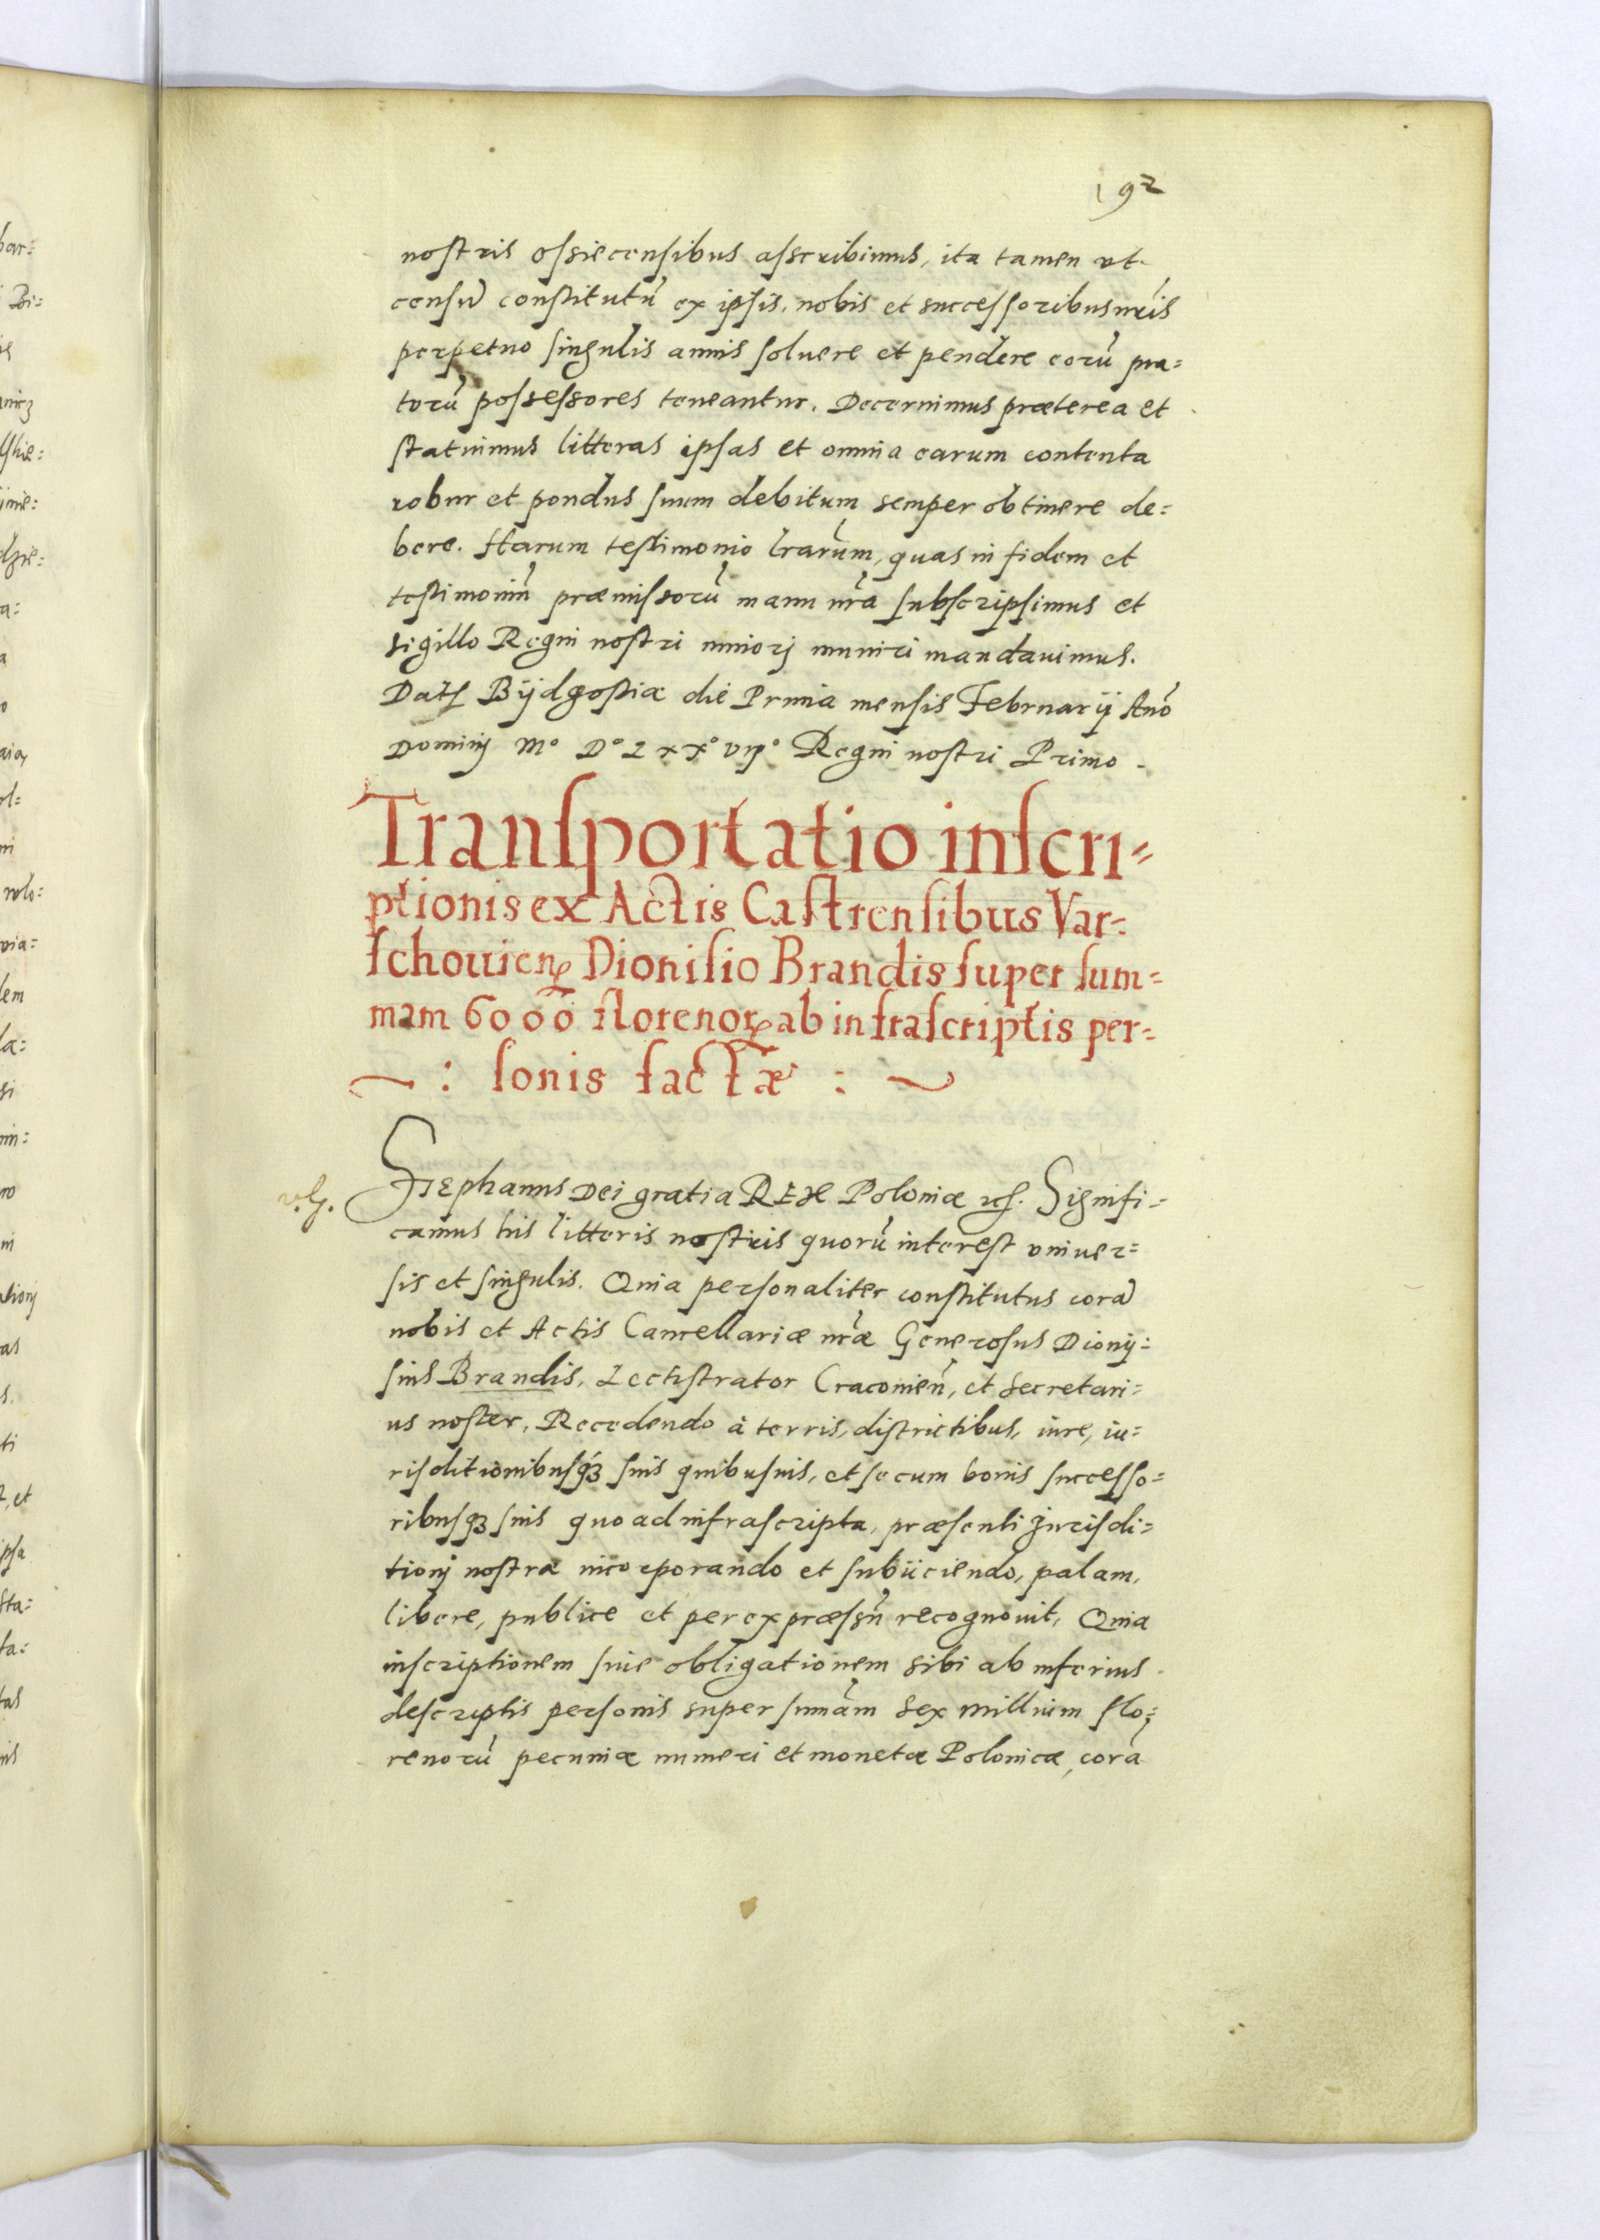 192
nostris ossiecensibus asscribimus, ita tamen vt
censũ constitutũ ex ipsis, nobis et successoribus nr̃is
perpetuo singulis annis soluere et pendere eorũ pra=
torũ possessores teneantur. Decernimus præterea et
statuimus litteras ipsas et omnia earum contenta
robur et pondus suum debitum semper obtinere de=
bere. Harum testimonio lr̃arum, quas in fidem et
testimoniũ præmissorũ manu nr̃a subscripsimus et
sigillo Regni nostri minorj muniri mandauimus.
Dat Bÿdgostiæ die Prima mensis Februarij Anõ
Dominj M° D° L xx° vij° Regni nostri Primo.
Transportatio inscri=
ptionis ex Actis Castrensibus Var=
schouien̄ Dionisio Brandis super sum=
mam 6000 florenoꝝ ab infrascriptis per=
~ : sonis factæ : ~
Stephanus Dei gratia REX Poloniæ etc. Signifi=
camus his litteris nostris quorũ interest vniuer=
sis et singulis. Quia personaliter constitutus corã
nobis et Actis Cancellariæ nr̃æ Generosus Dionij=
sius Brandis, Lectistrator Cracouien̄, et Secretari=
us noster, Recedendo à terris, districtibus, iure, iu=
risditionibusqꝫ suis quibusuis, et se cum bonis successo=
ribusqꝫ suis quo ad infrascripta, præsenti Jurisdi=
tionj nostræ incorporando et subijciendo, palam,
libere, publice et per expræssũ recognouit, Quia
inscriptionem siue obligationem sibi ab inferius
descriptis personis super sum̃am Sex Millium flo=
renorũ pecuniæ numeri et monetæ Polonicæ, corã